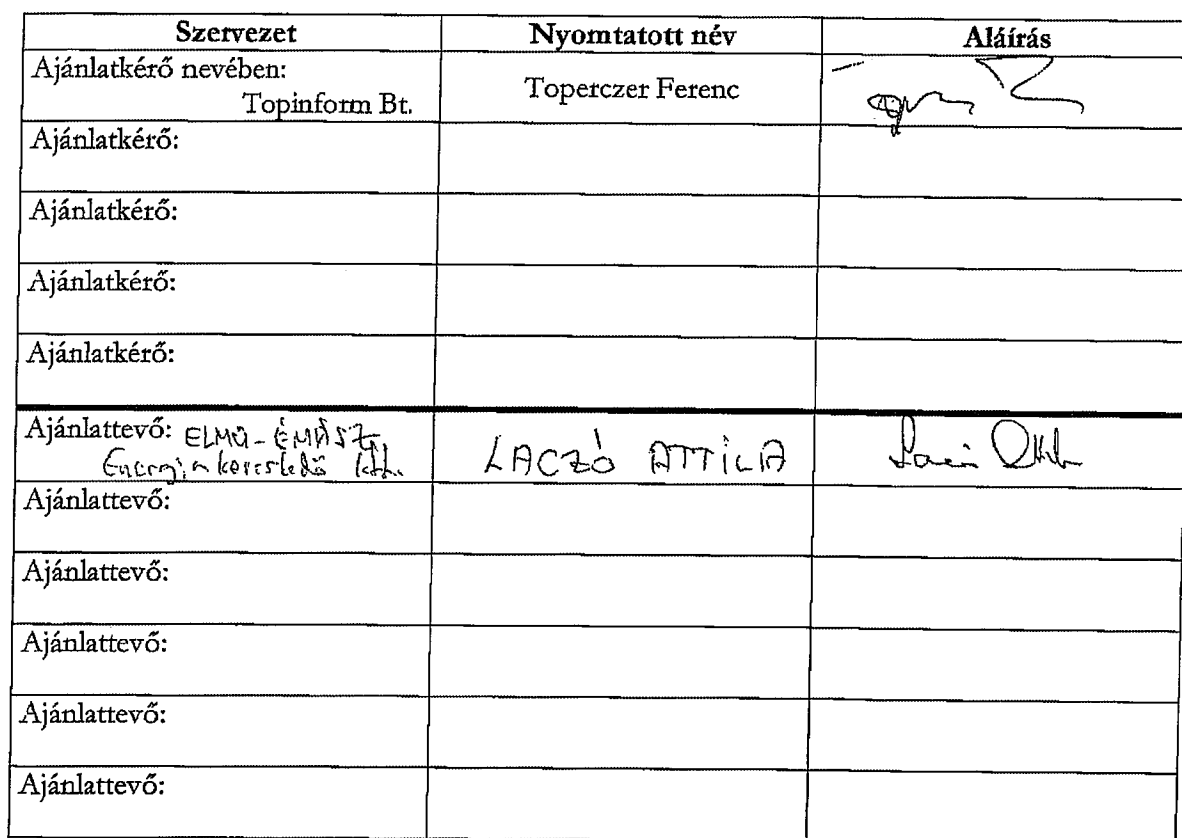 Szervezet Nyomtatott név Aláírás
Ajánlatkérő nevében:
Topinform Bt. Toperczer Ferenc
Ajánlatkérő:
Ajánlatkérő:
Ajánlatkérő:
Ajánlatkérő:
Ajánlattevő: ELMŰ-ÉMÁSZ
Energiakereskedő Kft. LACZÓ ATTILA
Ajánlattevő:
Ajánlattevő:
Ajánlattevő:
Ajánlattevő:
Ajánlattevő: